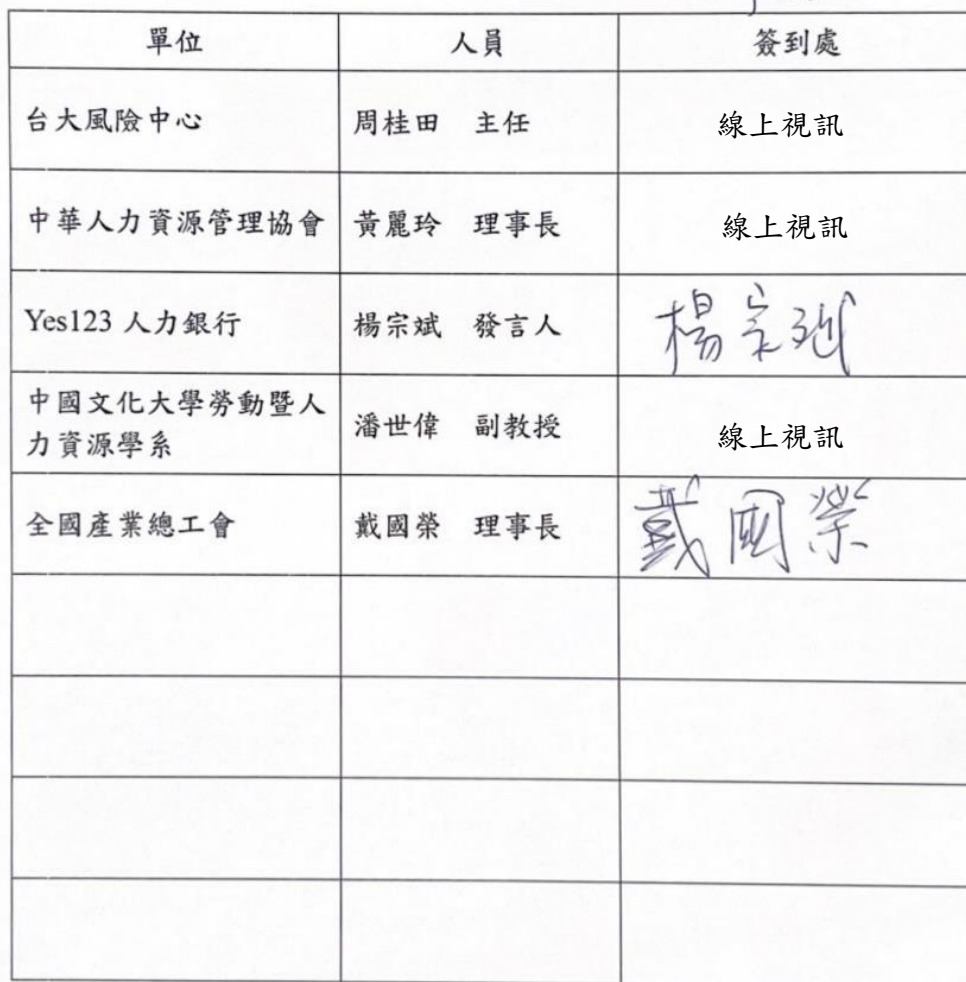 單位 人員 簽到處
台大風險中心 周桂田 主任 線上視訊
中華人力資源管理協會 黃麗玲 理事長 線上視訊
Yes123 人力銀行 楊宗斌 發言人 楊宗斌
中國文化大學勞動暨人
力資源學系 潘世偉 副教授 線上視訊
全國產業總工會 戴國榮 理事長 戴國榮